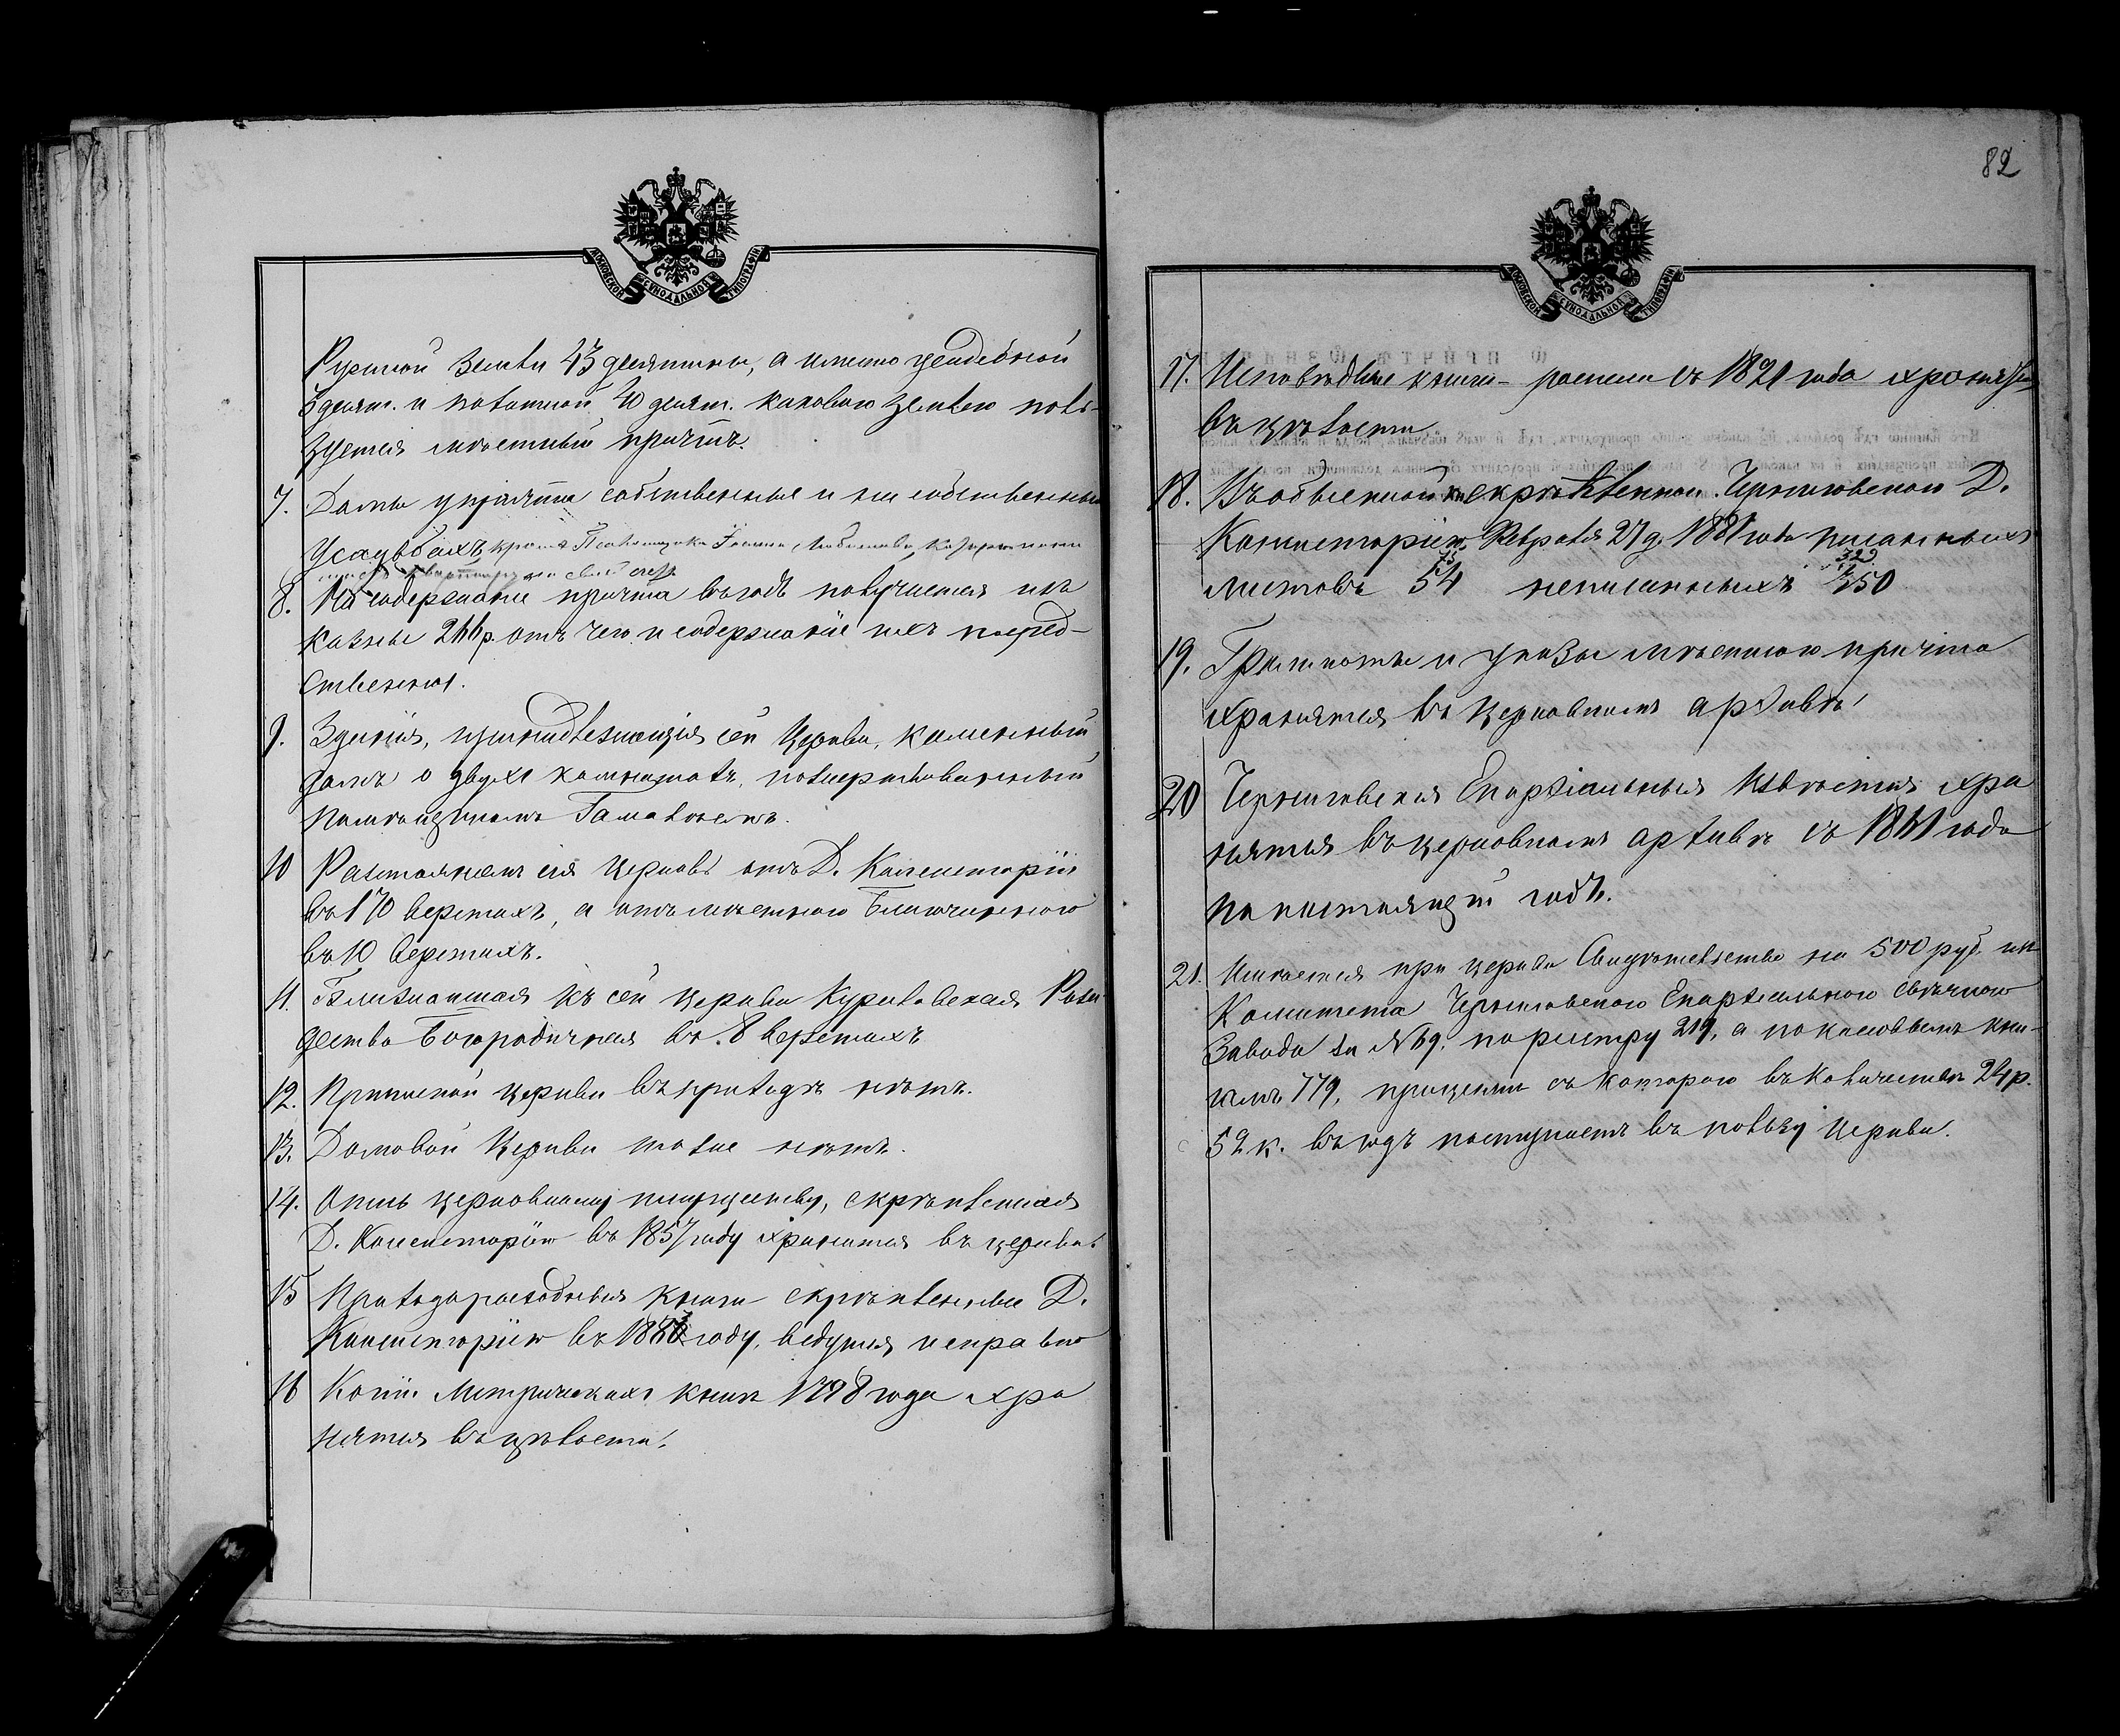 МОСКОВСКОЙ СѴНОДАЛЬНОЙ ТИПОГРАФІИ
Ружной земли 43 десятины, а именно усадебной
3 десят. и полевой 40 десят. каковою землею поль-
зуется мѣстный причтъ.
7. Домы у причта собственные и на собственныхъ
усадьбахъ, кромѣ Псаломщика
8. На содержаніе причта въ годъ получается изъ
казны 266 р. отъ чего и содержаніе ихъ посред-
ственно.
9. Зданія, принадлежащія сей Церкви, каменный
домъ о двухъ комнатахъ, пожертвованный
помѣщикомъ
10 Разстояніемъ сія церковь отъ Д. Консисторіи
въ 170 верстахъ, а отъ мѣстнаго Благочиннаго
въ 10 верстахъ.
11. Ближайшая къ сей церкви Куриловская Рож-
дество Богородичная въ 8 верстахъ
12. Приписной церкви въ приходѣ нѣтъ.
13. Домовой Церкви тоже нѣтъ.
14. Опись церковному имуществу, скрѣпленная
Д. Консисторіею въ 1857 году хранится въ церкви
15 Приходорасходныя книги скрѣпленные Д.
Консисторіею въ году, ведутся исправно
16 Копіи Метрическихъ книгъ 1798 года хра
нятся въ цѣлости.
82
МОСКОВСКОЙ СѴНОДАЛЬНОЙ ТИПОГРАФІИ
17. Исповѣдные книги - росписи съ 1821 года хранятся
въ цѣлости
18. Въ обыскной кн скрѣпленной Черниговскою Д.
Консисторіею Февраля 27 д. 1881 года писанныхъ
листовъ 54 неписанныхъ
19. Грамоты и указы мѣстнаго причта
хранятся въ церковномъ архивѣ
20 Черниговскія Епархіальныя Извѣстія хра
нятся въ церковномъ архивѣ съ 1861 года
по настоящій годъ.
21. Имѣется при церкви Свидѣтельство на 500 руб. изъ
Комитета Черниговскаго Епархіальнаго свѣчного
Завода за № 69. по реистру 219, а по кассовымъ кни-
гамъ 779, проценты съ котораго въ количествѣ 24 р.
52 к. въ годъ поступаетъ въ пользу Церкви.